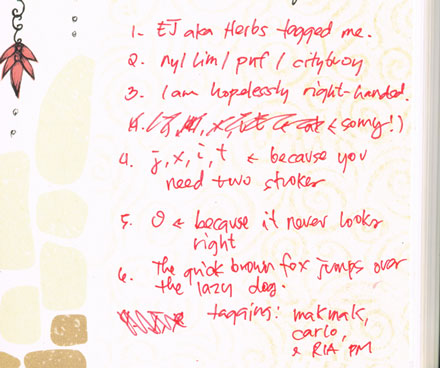 1. EJ aka Herbs tagged me.
2. nyl lim / pnf / cityboy
3. I am hopelessly right-handed.
4. (sorry!)
4. j, x, i, t ← because you
need two strokes
5. O ← because it never looks
right
6. The quick brown fox jumps over
the lazy dog.
tagging: makmak,
carlo,
& RIA PM